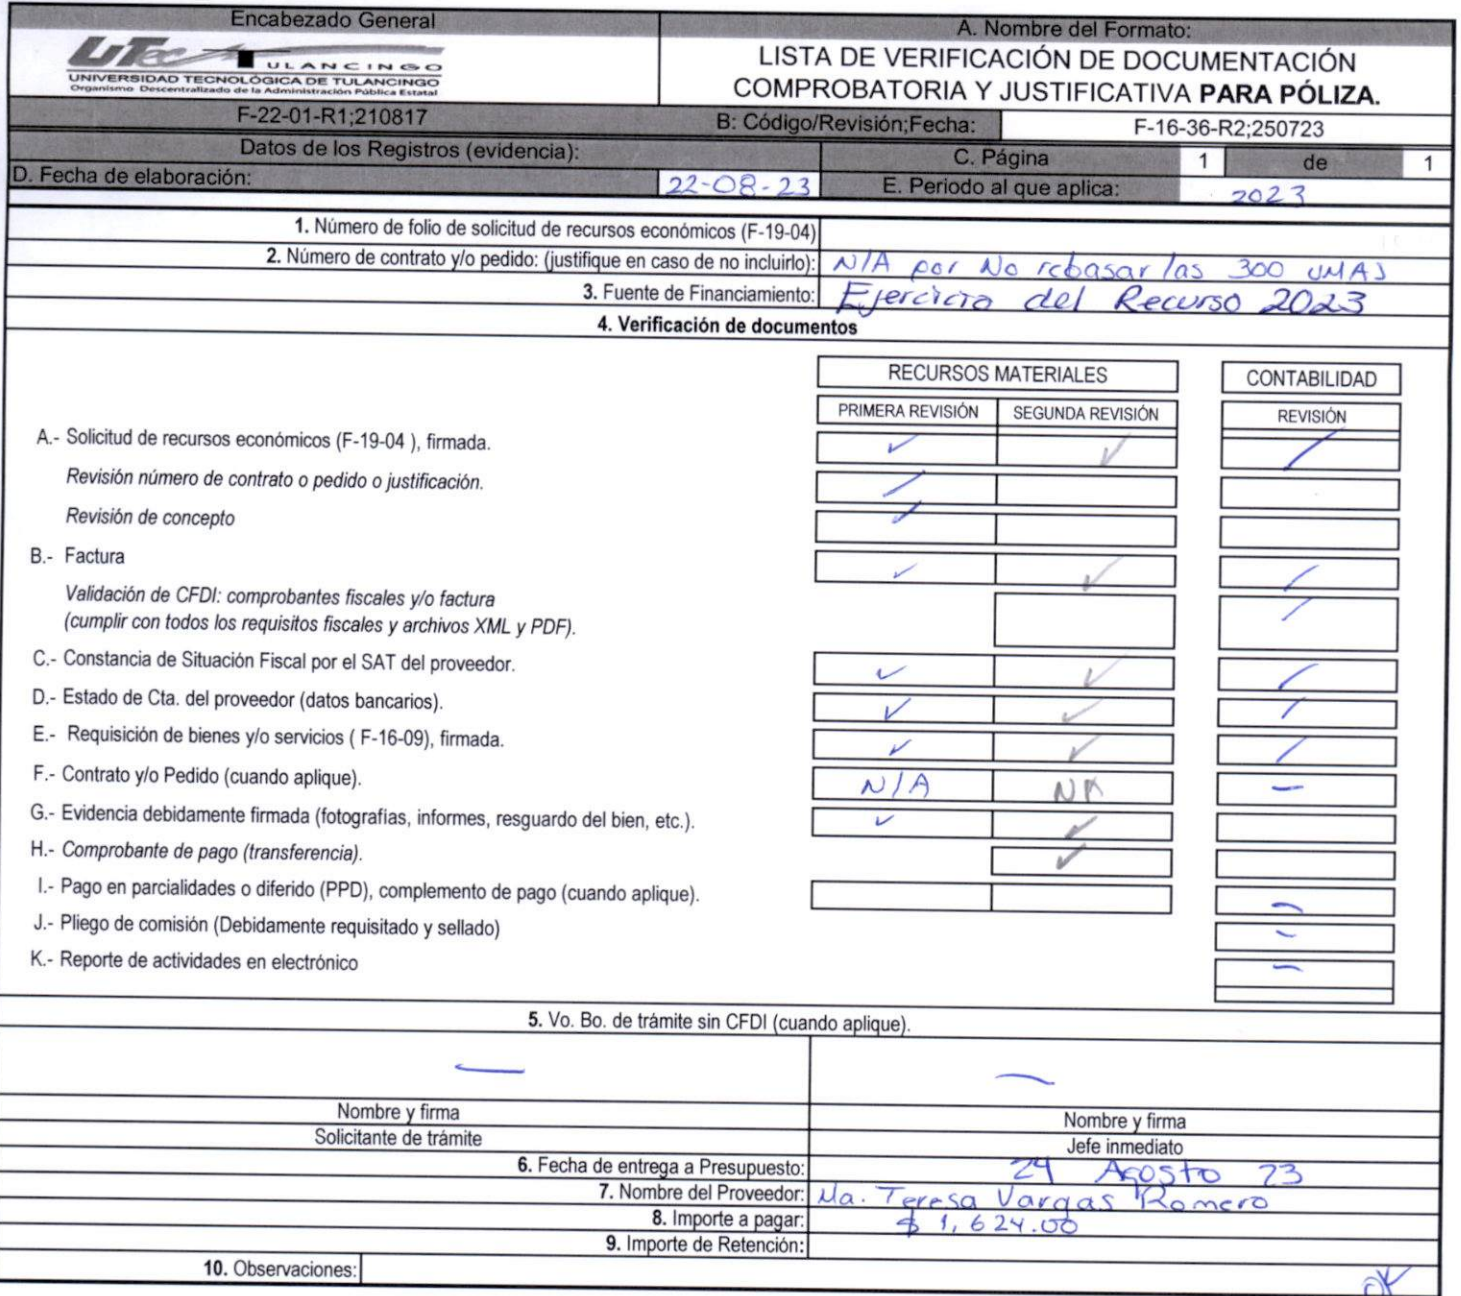 Encabezado General
A. Nombre del Formato:
UTec TULANCINGO
UNIVERSIDAD TECNOLÓGICA DE TULANCINGO
Organismo Descentralizado de la Administración Pública Estatal
LISTA DE VERIFICACIÓN DE DOCUMENTACIÓN
COMPROBATORIA Y JUSTIFICATIVA PARA PÓLIZA.
F-22-01-R1;210817
B: Código/Revisión;Fecha: F-16-36-R2;250723
Datos de los Registros (evidencia):
C. Página 1 de 1
D. Fecha de elaboración: 22-08-23
E. Periodo al que aplica: 2023
1. Número de folio de solicitud de recursos económicos (F-19-04)
2. Número de contrato y/o pedido: (justifique en caso de no incluirlo): N/A por No rebasar las 300 UMAS
3. Fuente de Financiamiento: Ejercicio del Recurso 2023
4. Verificación de documentos
RECURSOS MATERIALES CONTABILIDAD
PRIMERA REVISIÓN SEGUNDA REVISIÓN REVISIÓN
A.- Solicitud de recursos económicos (F-19-04 ), firmada. ✓ ✓ /
Revisión número de contrato o pedido o justificación. /
Revisión de concepto ✓
B.- Factura ✓ ✓ /
Validación de CFDI: comprobantes fiscales y/o factura /
(cumplir con todos los requisitos fiscales y archivos XML y PDF).
C.- Constancia de Situación Fiscal por el SAT del proveedor. ✓ ✓ /
D.- Estado de Cta. del proveedor (datos bancarios). ✓ ✓ /
E.- Requisición de bienes y/o servicios ( F-16-09), firmada. ✓ ✓ /
F.- Contrato y/o Pedido (cuando aplique). N/A NA –
G.- Evidencia debidamente firmada (fotografías, informes, resguardo del bien, etc.). ✓ ✓
H.- Comprobante de pago (transferencia). ✓
I.- Pago en parcialidades o diferido (PPD), complemento de pago (cuando aplique). –
J.- Pliego de comisión (Debidamente requisitado y sellado) –
K.- Reporte de actividades en electrónico –
5. Vo. Bo. de trámite sin CFDI (cuando aplique).
— —
Nombre y firma Nombre y firma
Solicitante de trámite Jefe inmediato
6. Fecha de entrega a Presupuesto: 24 Agosto 23
7. Nombre del Proveedor: Ma. Teresa Vargas Romero
8. Importe a pagar: $ 1,624.00
9. Importe de Retención:
10. Observaciones: OK